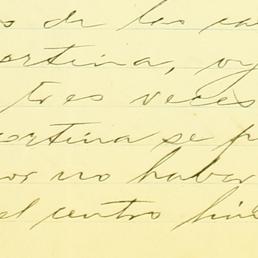 os de las ca
ortina, oy
tres veces
ortina se p
or no haber
el centro